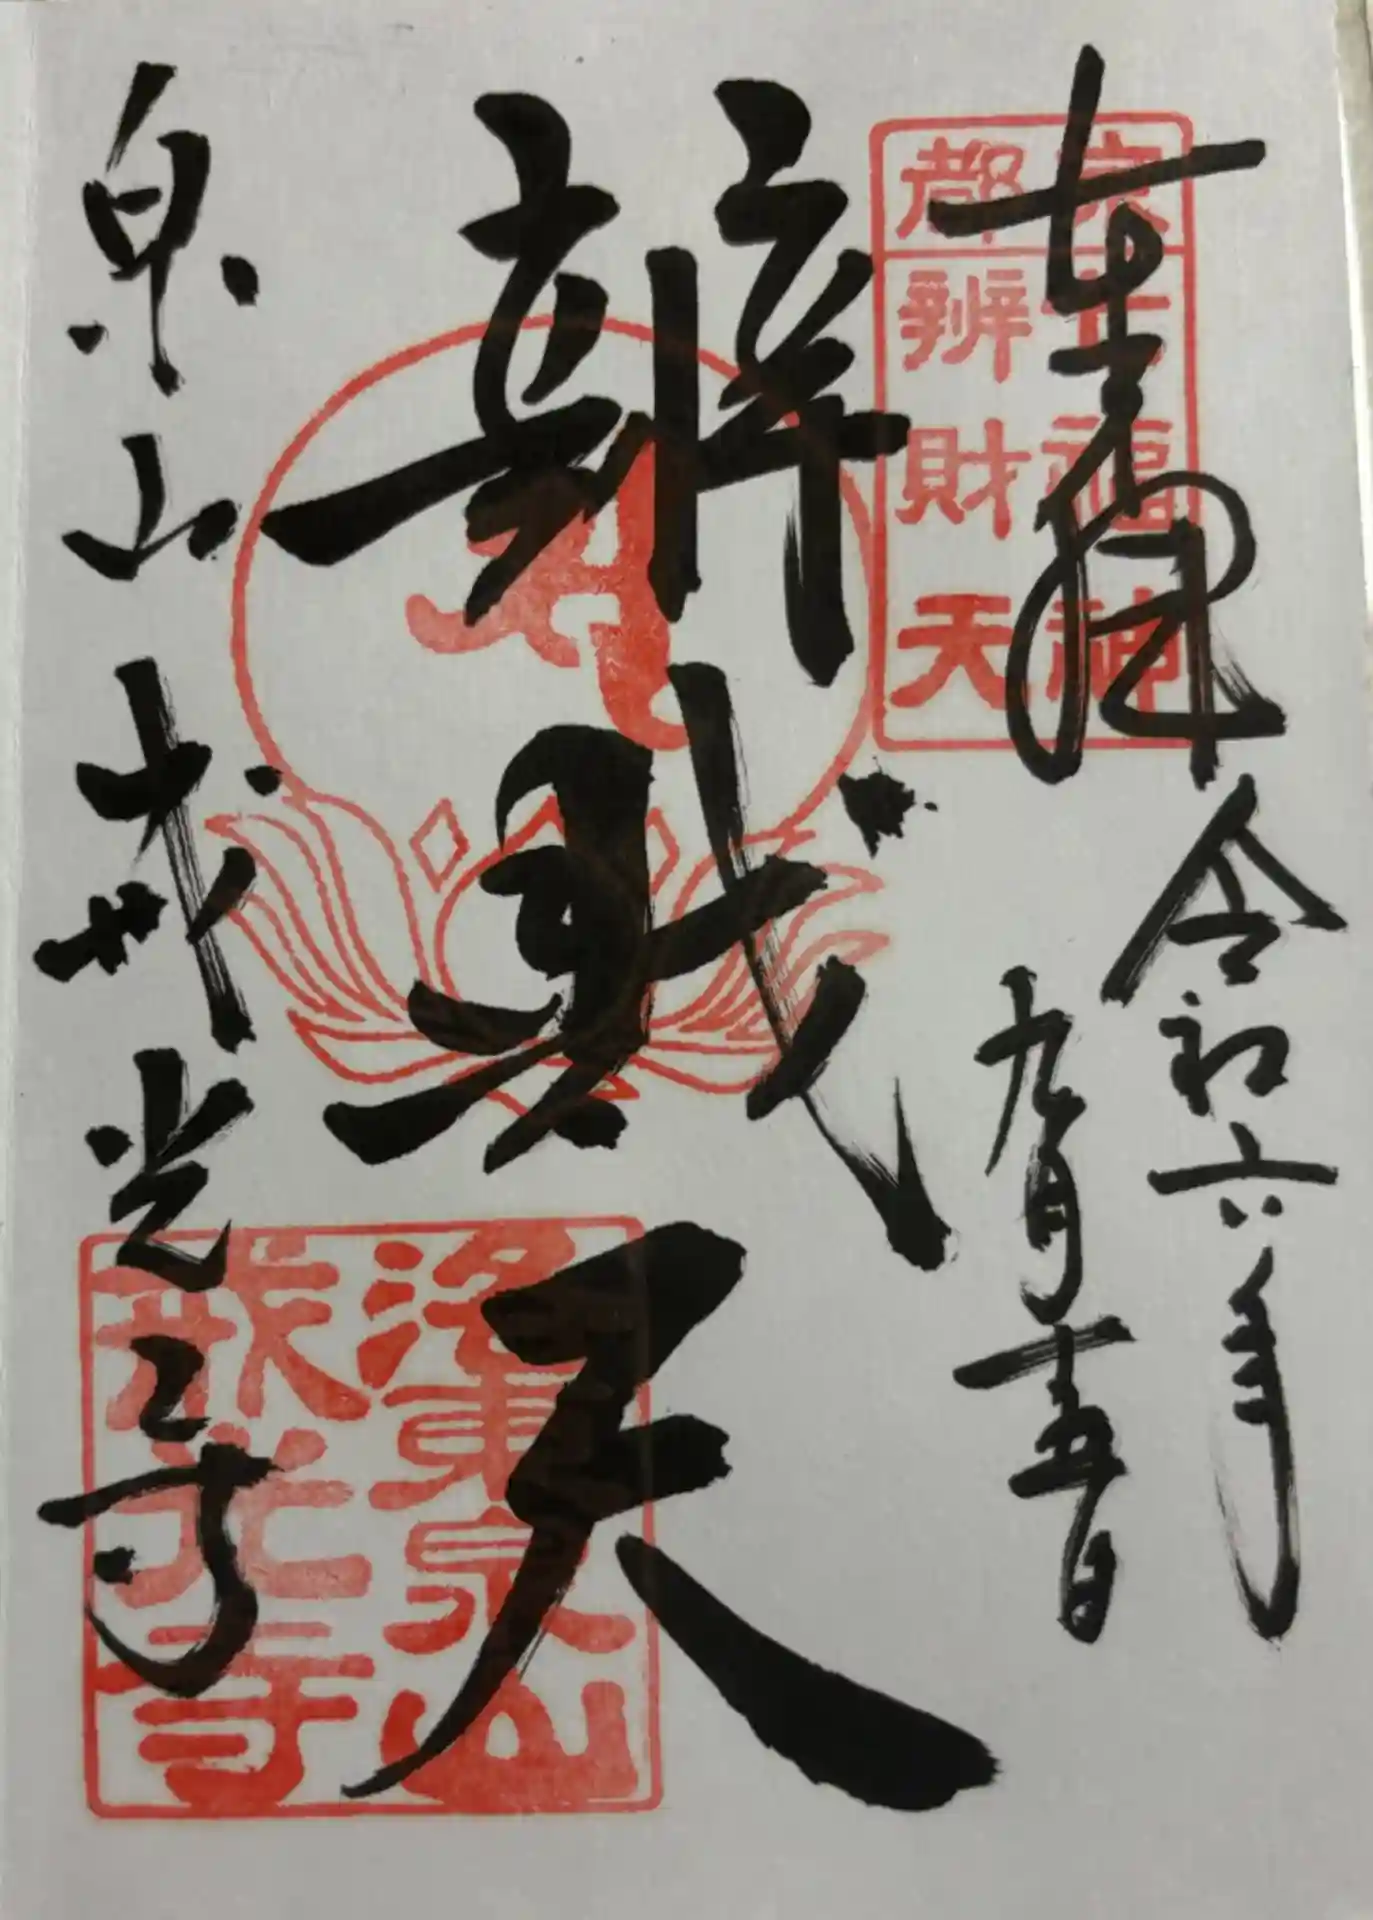 奉拝
令和六年
九月十五日
京都
七福神
辨財天
辨財天
泉山戒光寺
洛東泉山
戒光寺